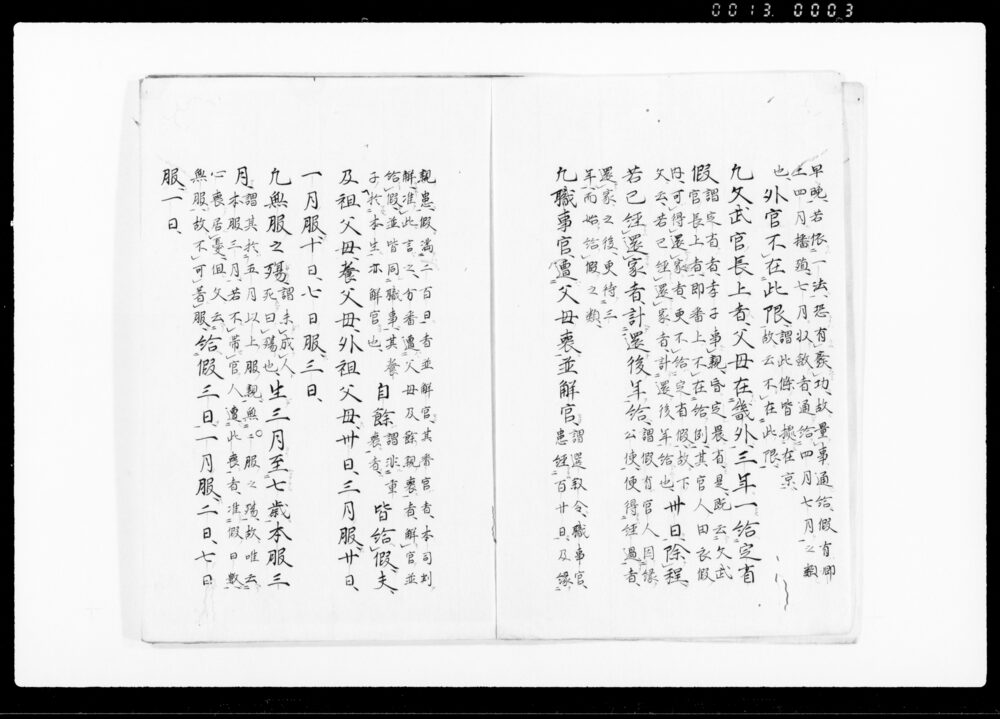 早晩、若依一法、恐有廢功、故量事通給、假有郷
土四月播種、七月収斂者、通給四月七月之類
也、外官不在此限、謂此條皆據在京、
故云不在此限、
凡文武官長上者、父母在畿外、三年一給定省
假謂定省者、孝子事親、昏定晨省、是、既云文武
官長上者、即番上不在給例、其官人田衣假
内、可得還家者、更不給定省假、故下
文云、若已經還家者、計還後年給也、卅日、除程、
若已經還家者、計還後年給、謂假有官人、因縁
公使、便得經過者、
還家之後、更待三
年、而始給假之類、
凡職事官、遭父母喪並解官、謂選敘令、職事官、
患經百廿日、及縁
親患、假滿二百日者、並解官、其番官者、本司判
解、准此言之、分番遭父母及餘親喪者、解官並
給假、並皆同職事、其養
子於本生、亦解官也、自餘謂非重
喪者、皆給假、夫
及祖父母、養父母、外祖父母、卅日、三月服、廿日、
一月服、十日、七日服、三日、
凡無服之殤、謂未成人
死曰殤也、生三月至七歳、本服三
月、謂其於五月以上服親、無二服之殤、故唯云
本服三月、若不帶官人遭此喪者、准假日數
心喪居憂、但文云
無服、故不可著服、給假三日、一月服、二日、七日
服、一日、